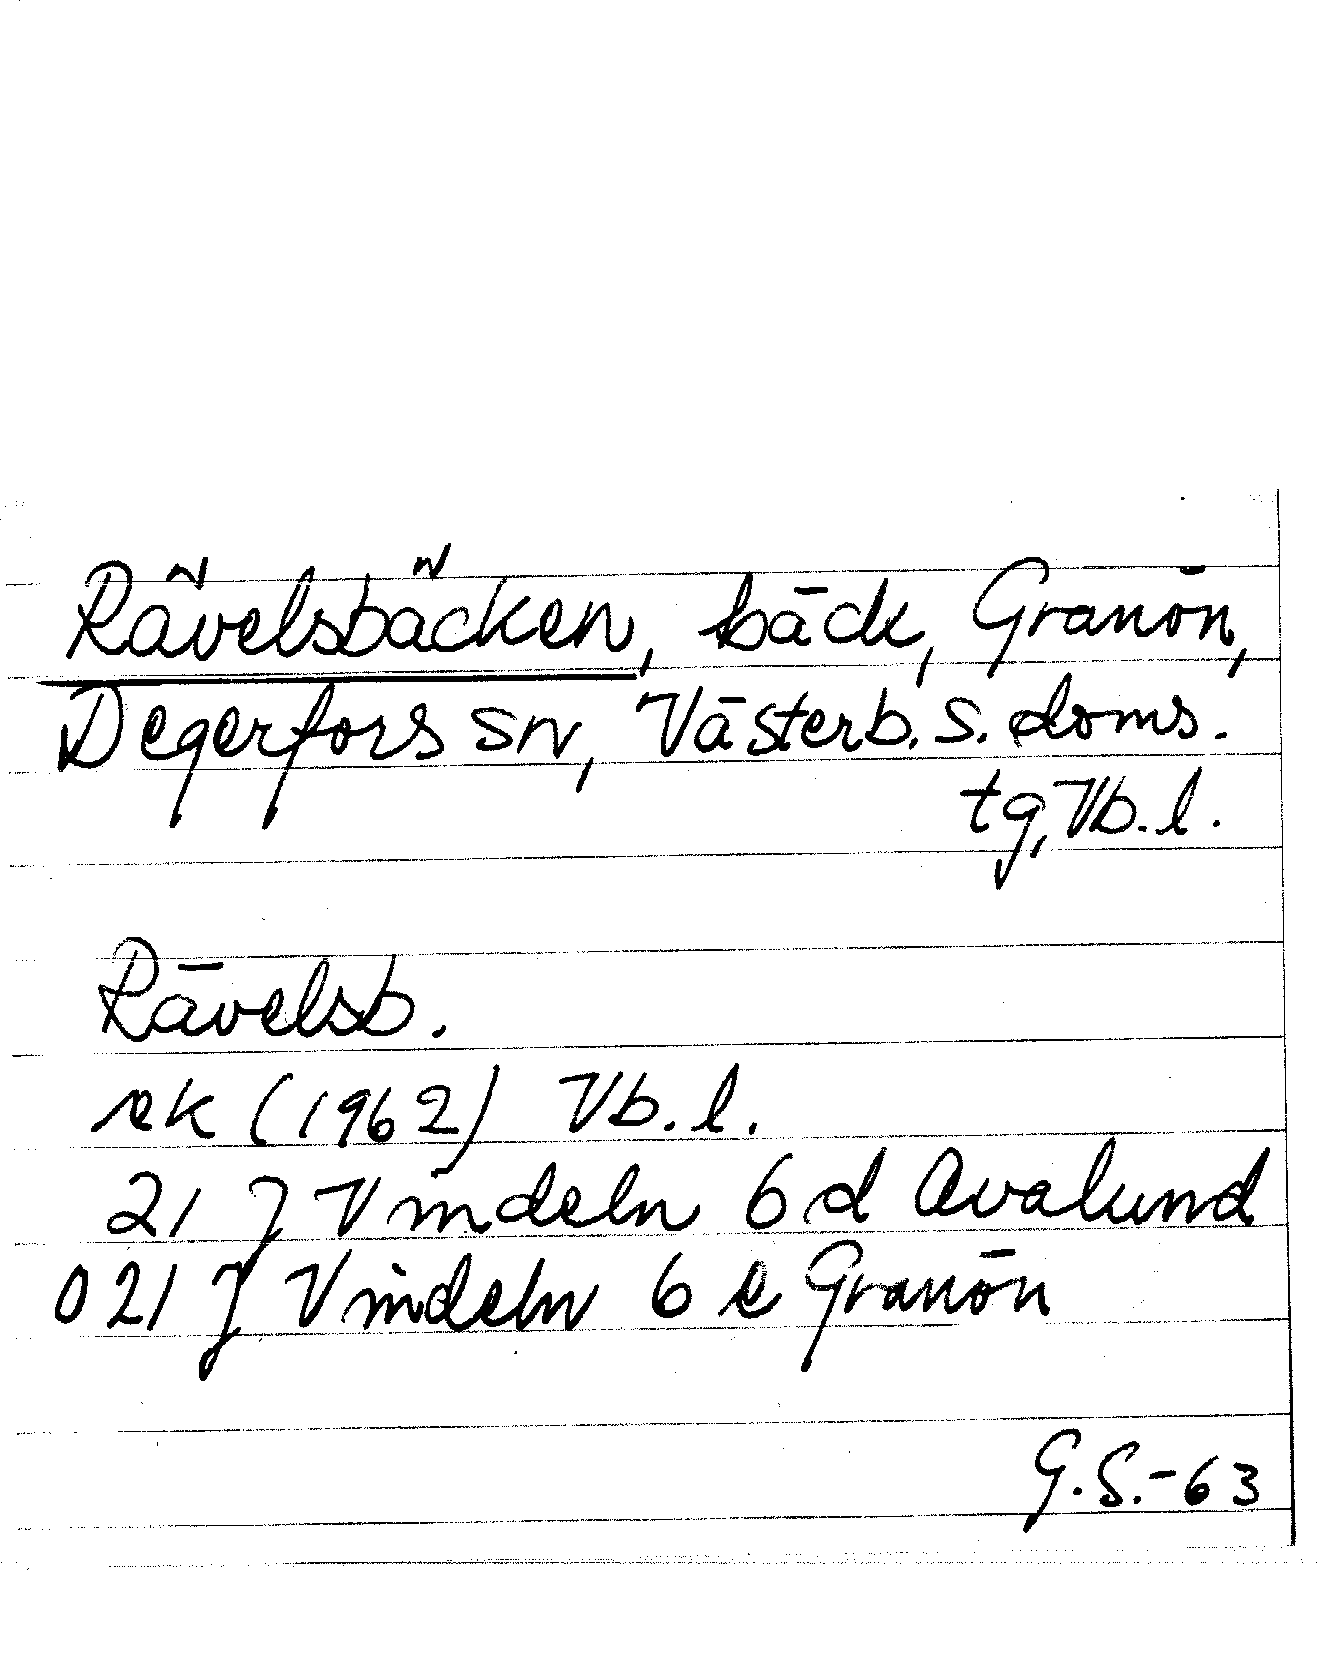 Rävelsbäcken, bäck, Granön,
Degerfors sn, Västerb. s. doms.
tg, Vb. l.
Rävelsb.
ek (1962) Vb. l.
21 J Vindeln 6 d Avalund
021 J Vindeln 6 e Granön
G.S.-63